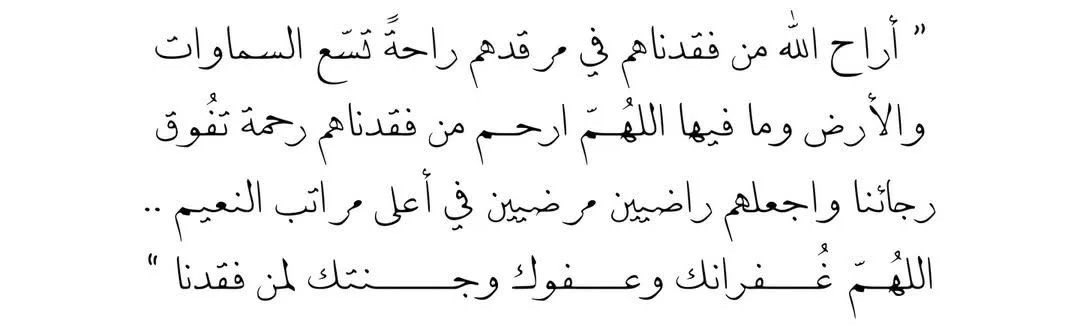 ” أراح الله من فقدناهم في مرقدهم راحةً تسّع السماوات
والأرض وما فيها اللهُمّ ارحم من فقدناهم رحمة تفُوق
رجائنا واجعلهم راضيين مرضيين في أعلى مراتب النعيم ..
اللهُمّ غُفرانك وعفوك وجنتك لمن فقدنا “